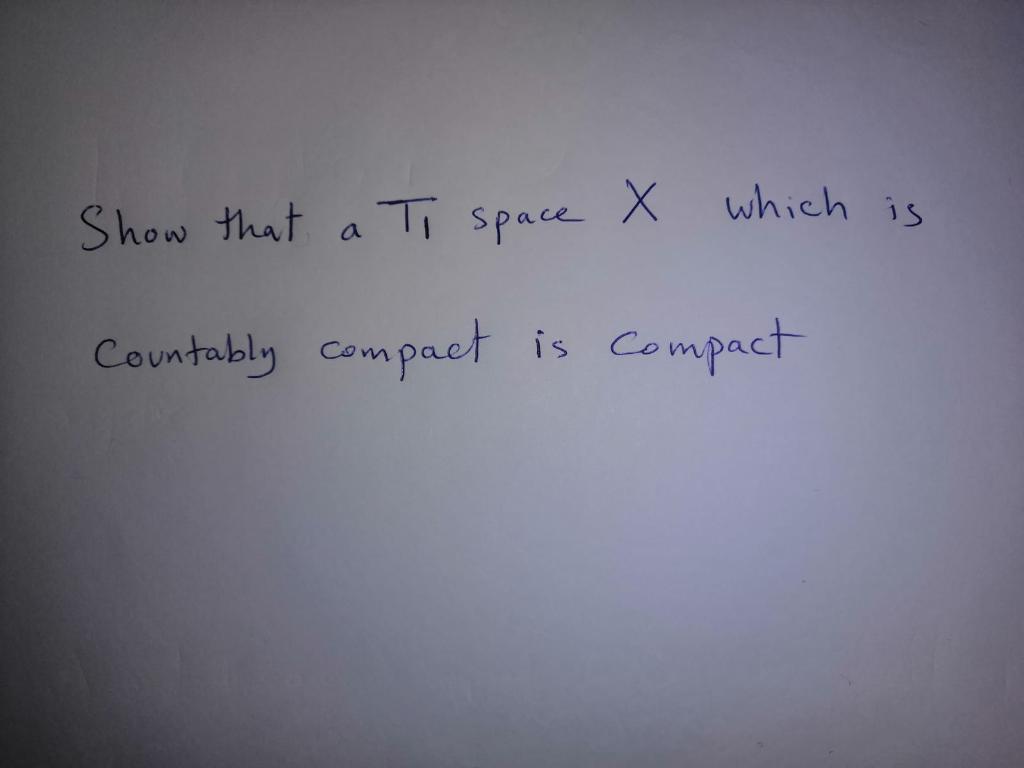 Show that a T1 space X which is
Countably compact is compact